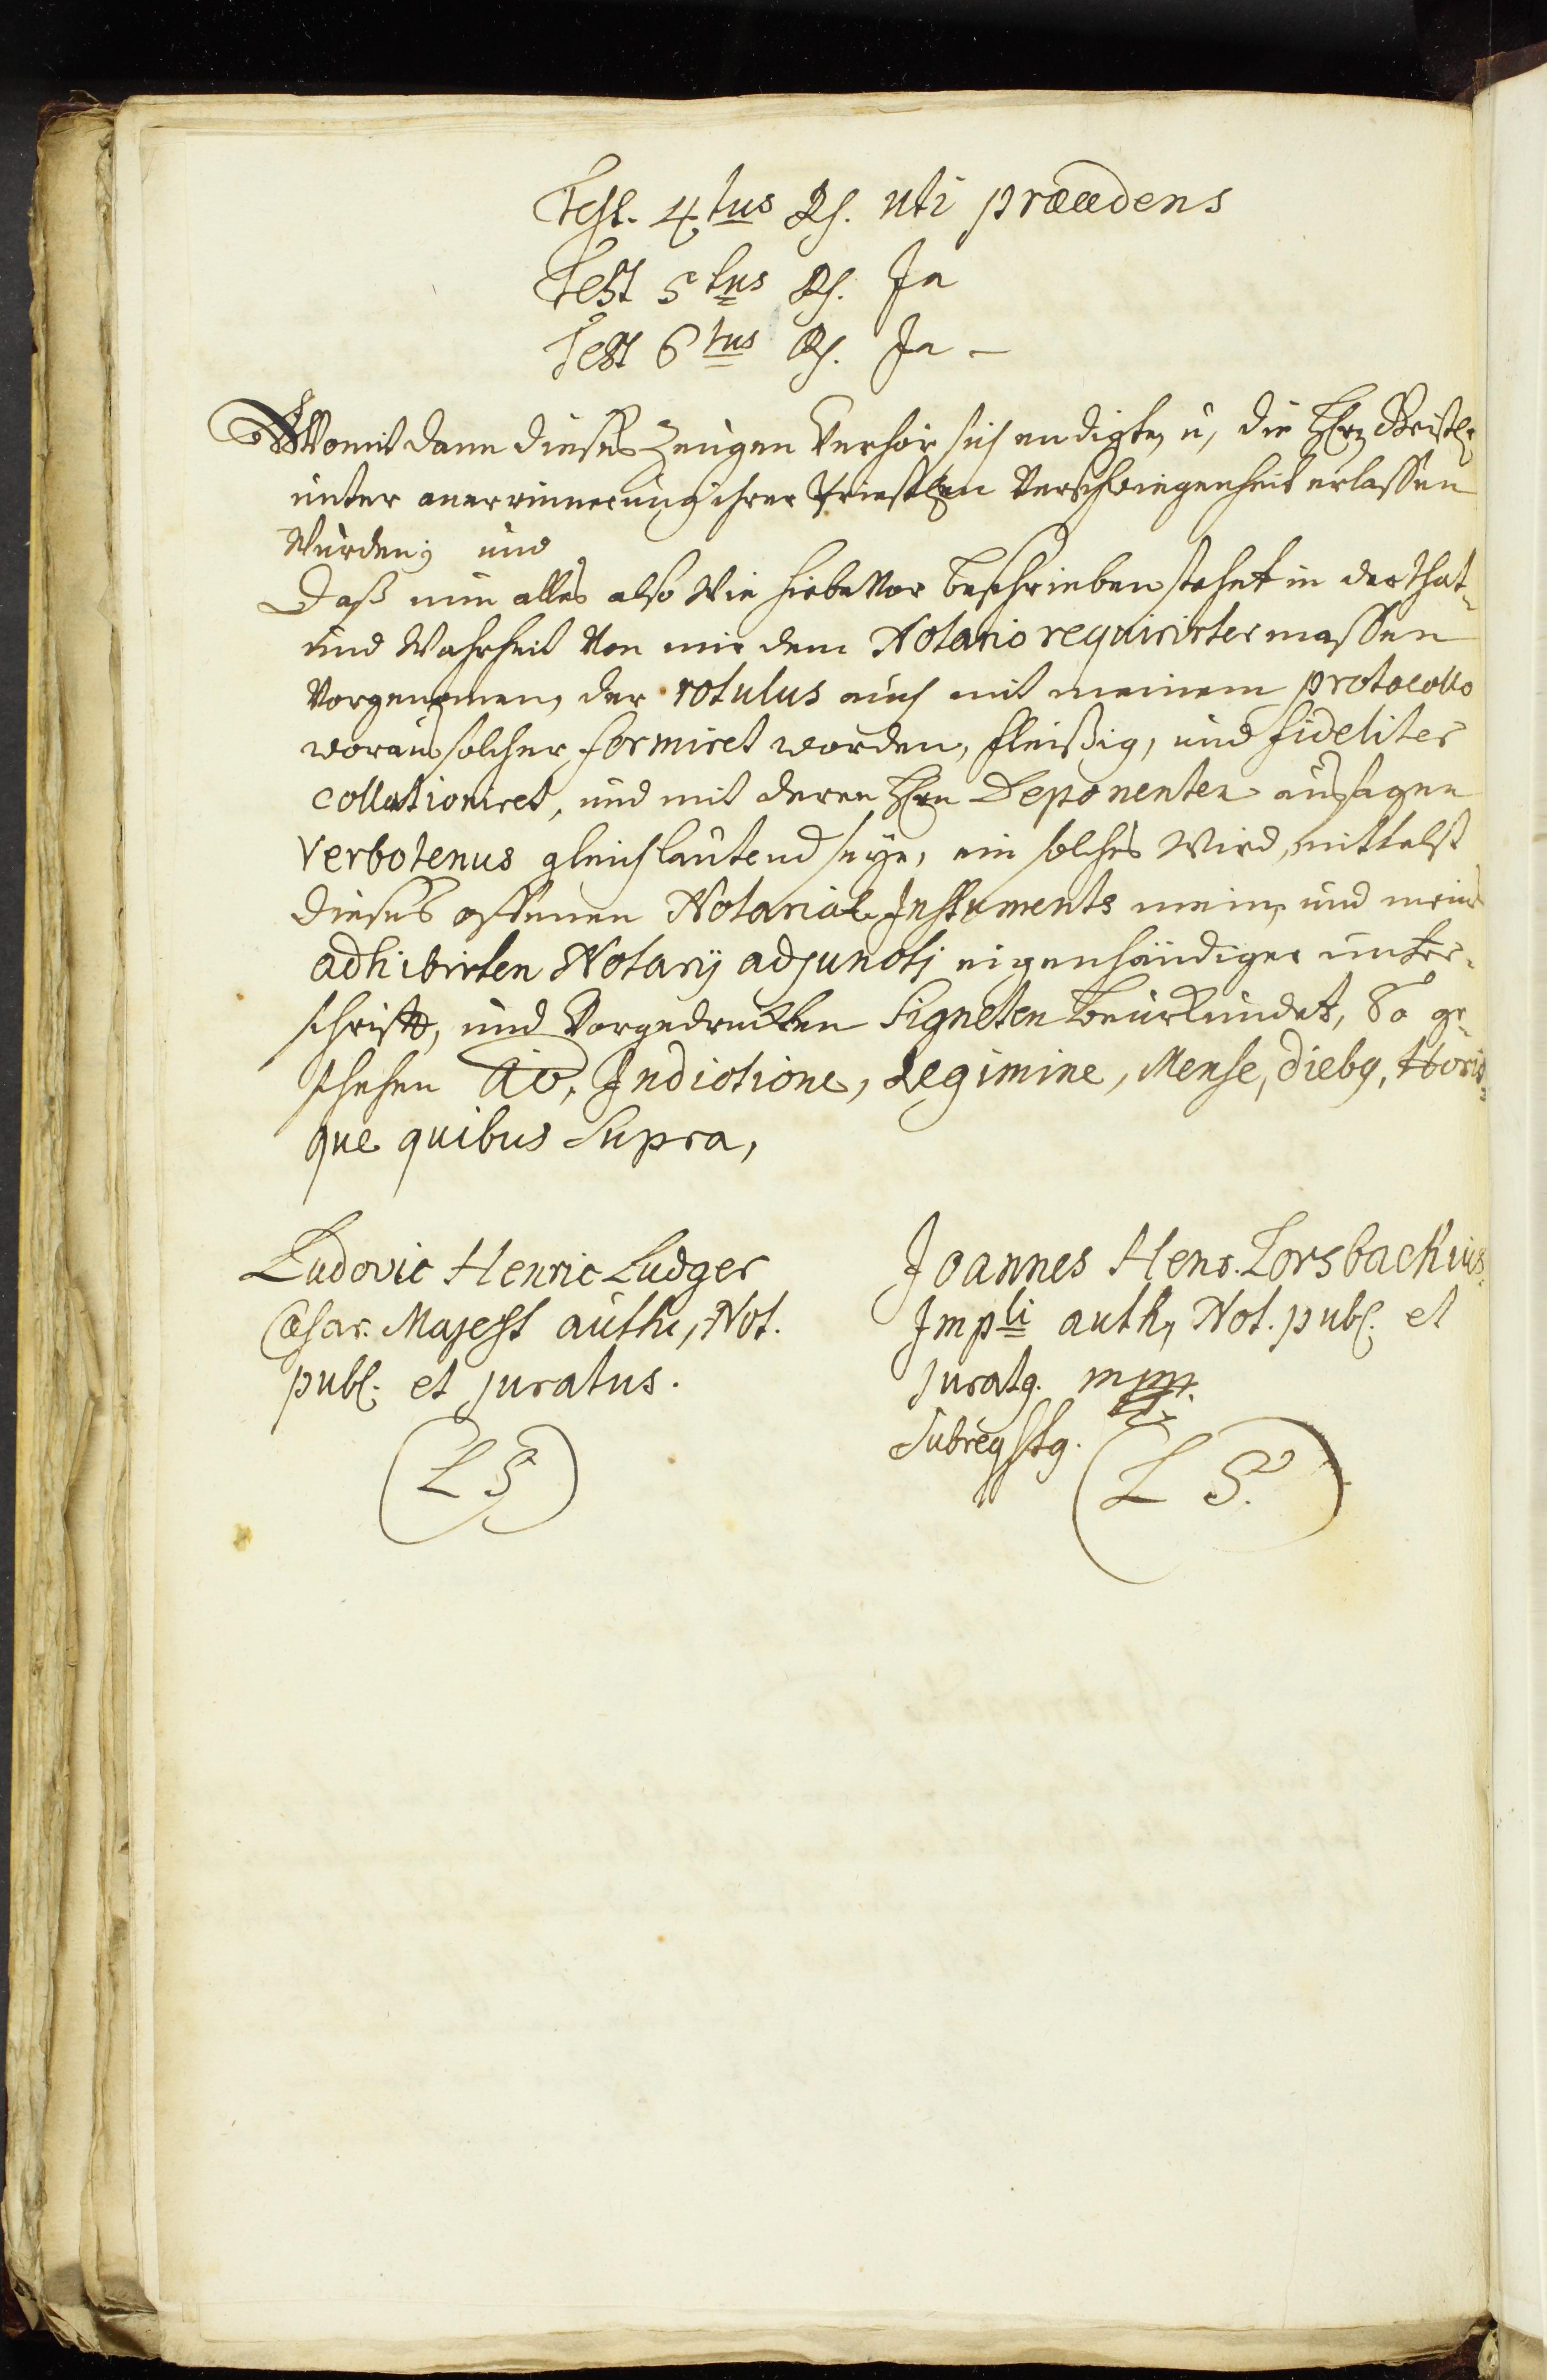 Test. 4tus Rs. uti præcedens
Test 5tus Rs. Ja
Test 6tus Rs. Ja —
Womit dann dieses Zeugen Verhör sich endigte, u, die Hhrn Geistl:
unter anerrinnerung ihrer Priestlen Verschwiegenheit erlassen
Wurden; und
Daß nun alles also Wie hiebevor beschrieben stehet in der that-
und Wahrheit Von mir dem Notario requirirter massen
Vorgenommen, der rotulus auch mit meinem protocollo
woraus solcher formiret worden, fleißig, und fideliter
collationiret, und mit deren Hhrn Deponenten aussagen
Verbotenus gleichlautend seye, ein solches Wird, mittelst
dieses offenen Notarial-Instruments mein, und meines
adhibirten Notarij adjuncti eigenhändiger unter-
schrifft, und Vorgedruckten Signeten beurkundet, So ge-
schehen Ao, Indictione, Regimine, Mense, diebq, Horis-
que quibus Supra,
Ludovic Henric Ludger
Cæsar. Majest auth, Not.
publ. et juratus.
(L S)
Joannes Henr. Lorsbachius
Impli auth, Not. publ. et
juratq. mpp.
Subreqstq.
(L S.)